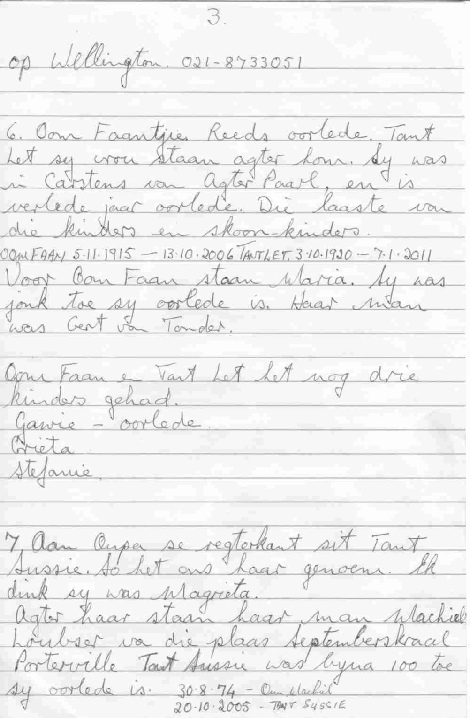 3.
op Wellington. 021-8733051
6. Oom Faantjie. Reeds oorlede. Tant
Let sy vrou staan agter hom. Sy was
'n Carstens van Agter Paarl, en is
verlede jaar oorlede. Die laaste van
die kinders en skoon-kinders.
OOM FAAN 5.11.1915 — 13.10.2006 TANT LET. 3.10.1920 — 7.1.2011
Voor Oom Faan staan Maria. Sy was
jonk toe sy oorlede is. Haar man
was Gert van Tonder.
Oom Faan en Tant Let het nog drie
kinders gehad.
Gawie - oorlede
Grieta
Stefanie.
7 Aan Oupa se regterkant sit Tant
Sussie. So het ons haar genoem. Ek
dink sy was Magrieta.
Agter haar staan haar man Machiel
Loubser van die plaas Septemberskraal
Porterville Tant Sussie was byna 100 toe
sy oorlede is. 30.8.74 - Oom Machiel
20.10.2005 - TANT SUSSIE